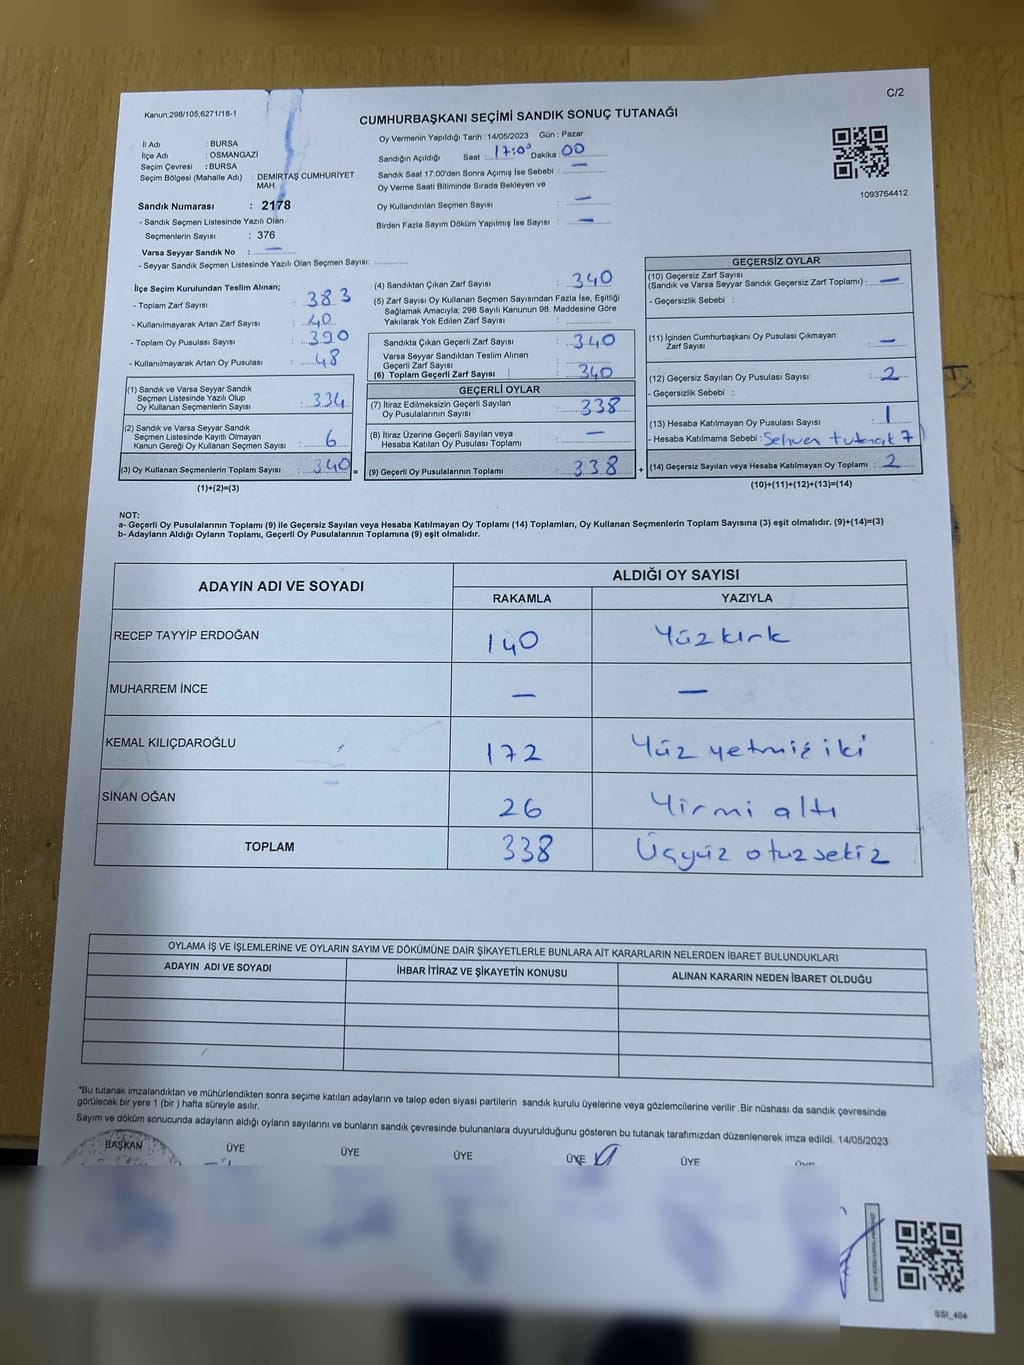 C/2
Kanun;298/105;6271/18-1
CUMHURBAŞKANI SEÇİMİ SANDIK SONUÇ TUTANAĞI
İl Adı : BURSA
İlçe Adı : OSMANGAZİ
Seçim Çevresi : BURSA
Seçim Bölgesi (Mahalle Adı) : DEMİRTAŞ CUMHURİYET
MAH.
Sandık Numarası : 2178
- Sandık Seçmen Listesinde Yazılı Olan
Seçmenlerin Sayısı : 376
Varsa Seyyar Sandık No : —
- Seyyar Sandık Seçmen Listesinde Yazılı Olan Seçmen Sayısı:
Oy Vermenin Yapıldığı Tarih : 14/05/2023 Gün : Pazar
Sandığın Açıldığı Saat : 17:00 Dakika : 00
Sandık Saat 17:00'den Sonra Açımış İse Sebebi : —
Oy Verme Saati Bitiminde Sırada Bekleyen ve
Oy Kullandırılan Seçmen Sayısı : —
Birden Fazla Sayım Döküm Yapılmış İse Sayısı : —
1093764412
İlçe Seçim Kurulundan Teslim Alınan;
- Toplam Zarf Sayısı : 383
- Kullanılmayarak Artan Zarf Sayısı : 40
- Toplam Oy Pusulası Sayısı : 390
- Kullanılmayarak Artan Oy Pusulası : 48
(1) Sandık ve Varsa Seyyar Sandık
Seçmen Listesinde Yazılı Olup
Oy Kullanan Seçmenlerin Sayısı : 334
(2) Sandık ve Varsa Seyyar Sandık
Seçmen Listesinde Kayıtlı Olmayan
Kanun Gereği Oy Kullanan Seçmen Sayısı : 6
(3) Oy Kullanan Seçmenlerin Toplam Sayısı : 340 =
(1)+(2)=(3)
(4) Sandıktan Çıkan Zarf Sayısı : 340
(5) Zarf Sayısı Oy Kullanan Seçmen Sayısından Fazla İse, Eşitliği
Sağlamak Amacıyla; 298 Sayılı Kanunun 98. Maddesine Göre
Yakılarak Yok Edilen Zarf Sayısı :
Sandıkta Çıkan Geçerli Zarf Sayısı : 340
Varsa Seyyar Sandıktan Teslim Alınan
Geçerli Zarf Sayısı :
(6) Toplam Geçerli Zarf Sayısı : 340
GEÇERLİ OYLAR
(7) İtiraz Edilmeksizin Geçerli Sayılan
Oy Pusulalarının Sayısı : 338
(8) İtiraz Üzerine Geçerli Sayılan veya
Hesaba Katılan Oy Pusulası Toplamı : —
(9) Geçerli Oy Pusulalarının Toplamı : 338 +
GEÇERSİZ OYLAR
(10) Geçersiz Zarf Sayısı
(Sandık ve Varsa Seyyar Sandık Geçersiz Zarf Toplamı) : —
- Geçersizlik Sebebi :
(11) İçinden Cumhurbaşkanı Oy Pusulası Çıkmayan
Zarf Sayısı : —
(12) Geçersiz Sayılan Oy Pusulası Sayısı : 2
- Geçersizlik Sebebi :
(13) Hesaba Katılmayan Oy Pusulası Sayısı : 1
- Hesaba Katılmama Sebebi : Sehven tutanak 7
(14) Geçersiz Sayılan veya Hesaba Katılmayan Oy Toplamı : 2
(10)+(11)+(12)+(13)=(14)
NOT:
a- Geçerli Oy Pusulalarının Toplamı (9) ile Geçersiz Sayılan veya Hesaba Katılmayan Oy Toplamı (14) Toplamları, Oy Kullanan Seçmenlerin Toplam Sayısına (3) eşit olmalıdır. (9)+(14)=(3)
b- Adayların Aldığı Oyların Toplamı, Geçerli Oy Pusulalarının Toplamına (9) eşit olmalıdır.
ADAYIN ADI VE SOYADI
ALDIĞI OY SAYISI
RAKAMLA YAZIYLA
RECEP TAYYİP ERDOĞAN 140 Yüzkırk
MUHARREM İNCE — —
KEMAL KILIÇDAROĞLU 172 Yüz yetmiş iki
SİNAN OĞAN 26 Yirmi altı
TOPLAM 338 Üçyüz otuz sekiz
OYLAMA İŞ VE İŞLEMLERİNE VE OYLARIN SAYIM VE DÖKÜMÜNE DAİR ŞİKAYETLERLE BUNLARA AİT KARARLARIN NELERDEN İBARET BULUNDUKLARI
ADAYIN ADI VE SOYADI İHBAR İTİRAZ VE ŞİKAYETİN KONUSU ALINAN KARARIN NEDEN İBARET OLDUĞU
*Bu tutanak imzalandıktan ve mühürlendikten sonra seçime katılan adayların ve talep eden siyasi partilerin sandık kurulu üyelerine veya gözlemcilerine verilir .Bir nüshası da sandık çevresinde
görülecek bir yere 1 (bir ) hafta süreyle asılır.
Sayım ve döküm sonucunda adayların aldığı oyların sayılarını ve bunların sandık çevresinde bulunanlara duyurulduğunu gösteren bu tutanak tarafımızdan düzenlenerek imza edildi. 14/05/2023
BAŞKAN ÜYE ÜYE ÜYE ÜYE ÜYE
SSI_404